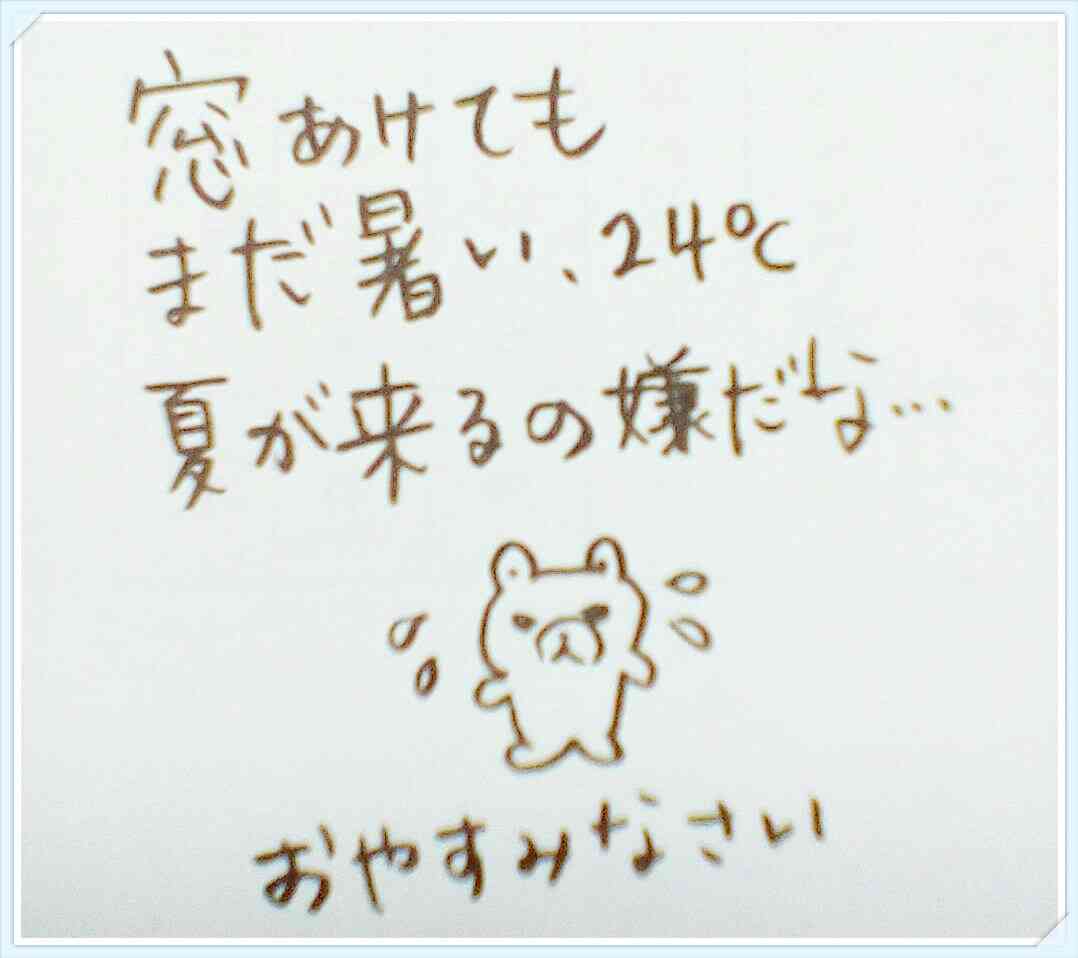 窓あけても
まだ暑い、24℃
夏が来るの嫌だな…
おやすみなさい